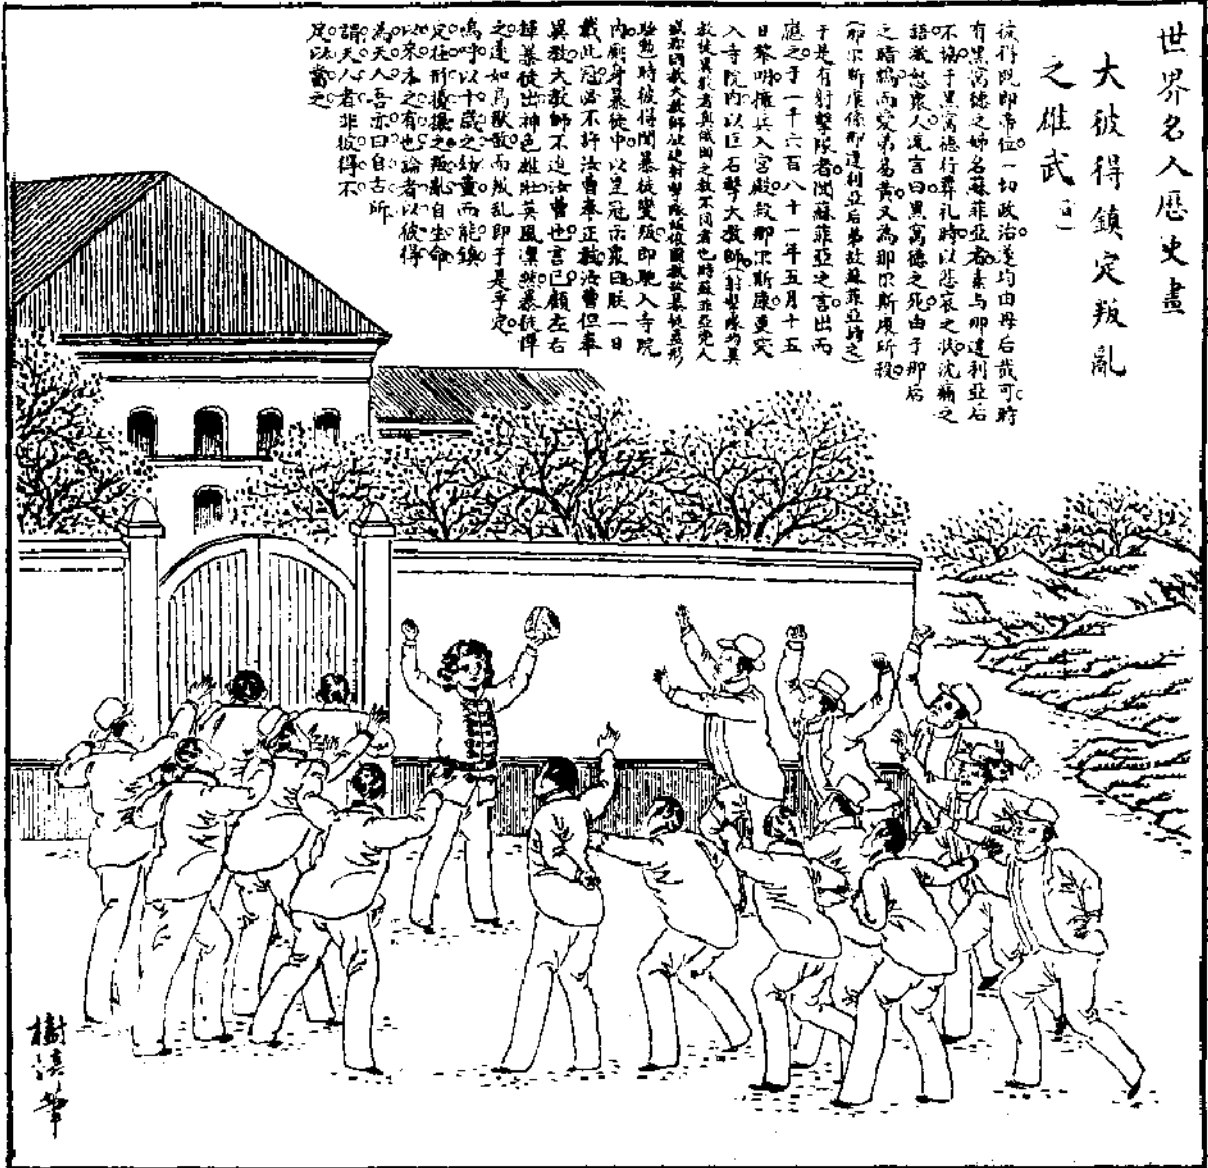 世界名人歷史畫
大彼得鎮定叛亂
之雄武
彼得既即帝位一切政治遂均由母后裁可時
有黑窩德之姊名蘇菲亞者素與那達利亞后
不協于黑窩德行葬礼時以悲哀之淚沈痛之
語激怒眾人流言曰黑窩德之死由于那后
之暗鴆而愛弟易黄又為那尔斯康所殺
(那尔斯康係那達利亞后弟故蘇菲亞誇之)
于是有射擊隊者聞蘇菲亞之言出而
應之于一千六百八十一年五月十五
日黎明擁兵入宮殿殺那尔斯康更突
入寺院內以巨石擊大教師(射擊隊均異
教徒異教者與俄国之教不同者也時蘇菲亞党人
大教師 射擊隊 国教故暴徒益形
騷動)時彼得聞暴徒變叛即馳入寺院
內廁身暴徒中以皇冠示眾曰朕一日
戴此冠必不許汝曹奉正教汝曹但奉
異教大教師不迫汝曹也言已顧左右
揮暴徒出神色雄壯英風凜然暴徒憚
之遠如鳥獸散而叛乱即于是乎定
嗚呼以十歲之幼童而能鎮
定狂形擾攘之叛亂自生命
以來未之有也論者以彼得
為天人吾亦曰自古所
謂天人者非彼得不
足以當之
樹 筆